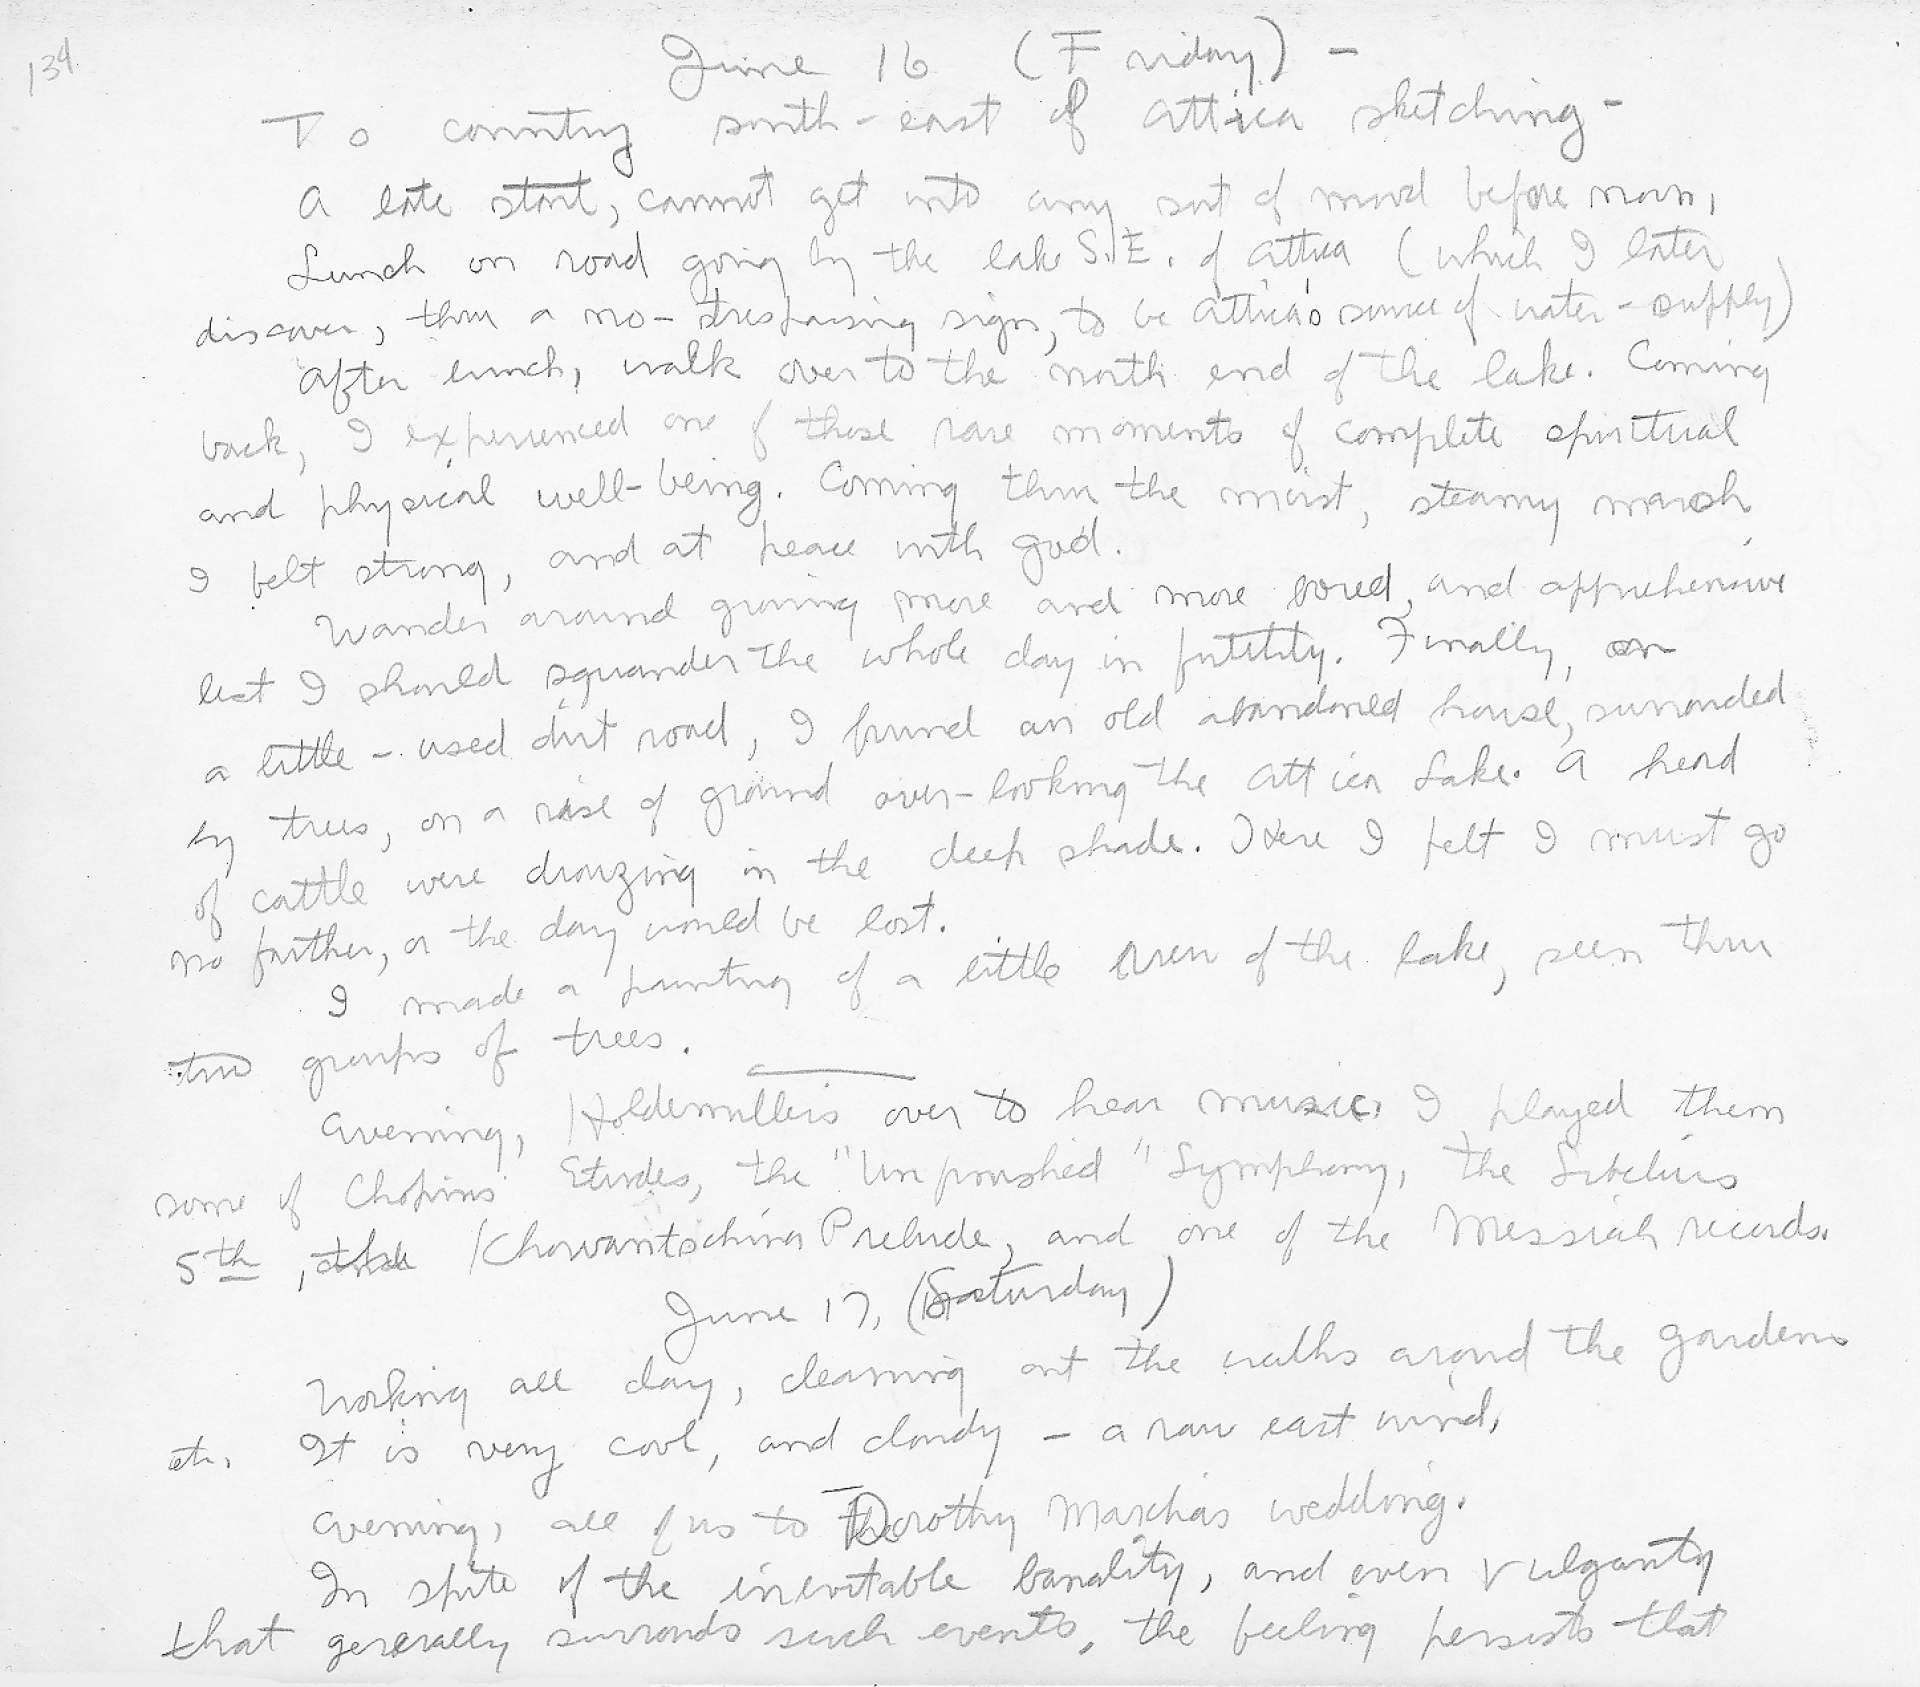 134
June 16 (Friday) -
To country south-east of Attica sketching -
A late start, cannot get into any sort of mood before noon,
Lunch on road going by the lake S.E. of Attica (which I later
discover, thru a no-trespassing sign, to be Attica's source of water-supply)
After lunch, walk over to the north end of the lake. Coming
back, I experienced one of those rare moments of complete spiritual
and physical well-being. Coming thru the moist, steamy marsh,
I felt strong, and at peace with god.
Wander around growing more and more bored, and apprehensive
lest I should squander the whole day in futility. Finally, on
a little-used dirt road, I found an old abandoned house, surrounded
by trees, on a rise of ground over-looking the Attica Lake. A herd
of cattle were drowzing in the deep shade. Here I felt I must go
no further, or the day would be lost.
I made a painting of a little view of the lake, seen thru
two groups of trees.
Evening, Holdermullers over to hear music. I played them
some of Chopins Etudes, the "Unfinished" Symphony, the Sibelius
5th, the Khovantschina Prelude, and one of the Messiah records.
June 17, (Saturday)
Working all day, cleaning out the walks around the gardens
etc. It is very cool, and cloudy - a raw east wind.
Evening, all of us to Dorothy wedding.
In spite of the inevitable banality, and even vulgarity
that generally surrounds such events, the feeling persists that